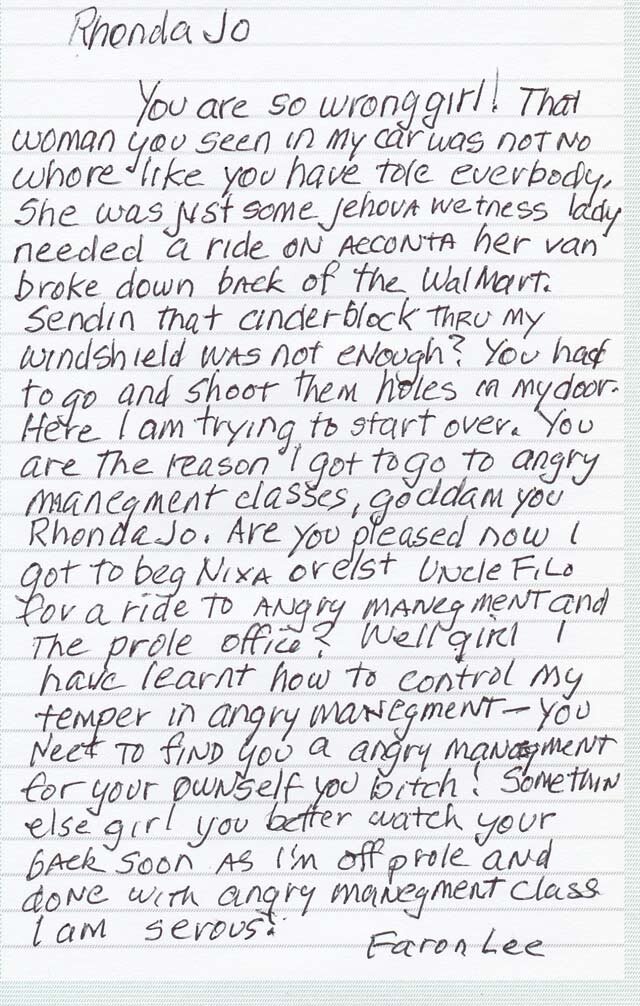 Rhonda Jo
You are so wrong girl! That
woman you seen in my car was not no
whore like you have tole everbody.
She was just some Jehova wetness lady
needed a ride on aeconta her van
broke down back of the WalMart.
Sendin that cinderblock thru my
windshield was not enough? You had
to go and shoot them holes in my door.
Here I am trying to start over. You
are the reason I got to go to angry
manegment classes, goddam you
Rhonda Jo. Are you pleased now I
got to beg Nixa orelst Uncle Filo
for a ride to angry manegment and
the prole office? Well girl I
have learnt how to control my
temper in angry manegment - you
neet to find you a angry manegment
for your ownself you bitch! Somethin
else girl you better watch your
back soon as I'm off prole and
done with angry manegment class
I am serous!
Earon Lee